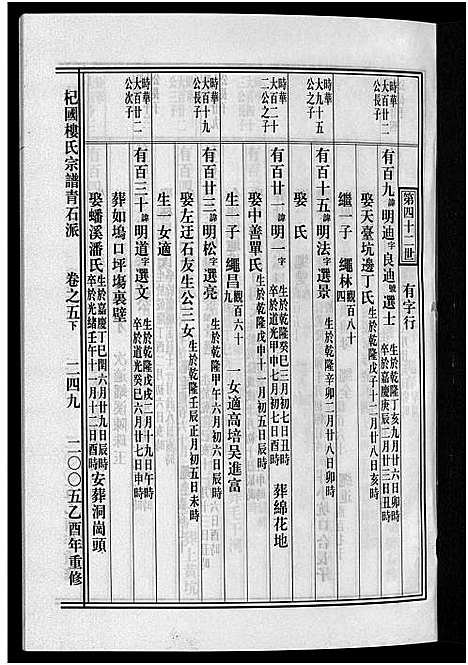 第四十二世　有字行
時華大百廿二公長子
有百九諱明迪字良迪號選士　生於乾隆丁亥九月廿六日卯時　卒於嘉慶庚辰二月廿三日丑時
娶天臺坑邊丁氏　生於乾隆戊子十二月廿八日辰時
繼一子　繩林觀百八十四
時華大九十五公之子
有百十五諱明法字選景　生於乾隆辛卯二月廿八日卯時
娶　氏
時華大百二十二公之子
有百廿一諱明一字　生於乾隆癸巳三月初七日丑時　卒於道光甲申七月初七日酉時　葬綿花地
娶中善單氏　生於乾隆戊申十一月初五日辰時
生一子　繩昌觀百六十　一女適高培吳進富
時華大百十九公長子
有百廿三諱明松字選亮　生於乾隆甲午六月初六日辰時
娶左迂石友生公三女　生於乾隆壬辰正月初五日未時
生一女適
時華大百廿二公次子
有百三十諱明道字選文　生於乾隆戊戌二月十九日午時　卒於道光癸巳六月廿七日申時
葬如塢口坪塲裏壁
娶蟠溪潘氏　生於嘉慶丁巳閏六月廿九日辰時　卒於光緒壬午十一月十二日酉時　安葬洞崗頭
杞國樓氏宗譜青石派　卷之五下　二四九　二〇〇五乙酉年重修